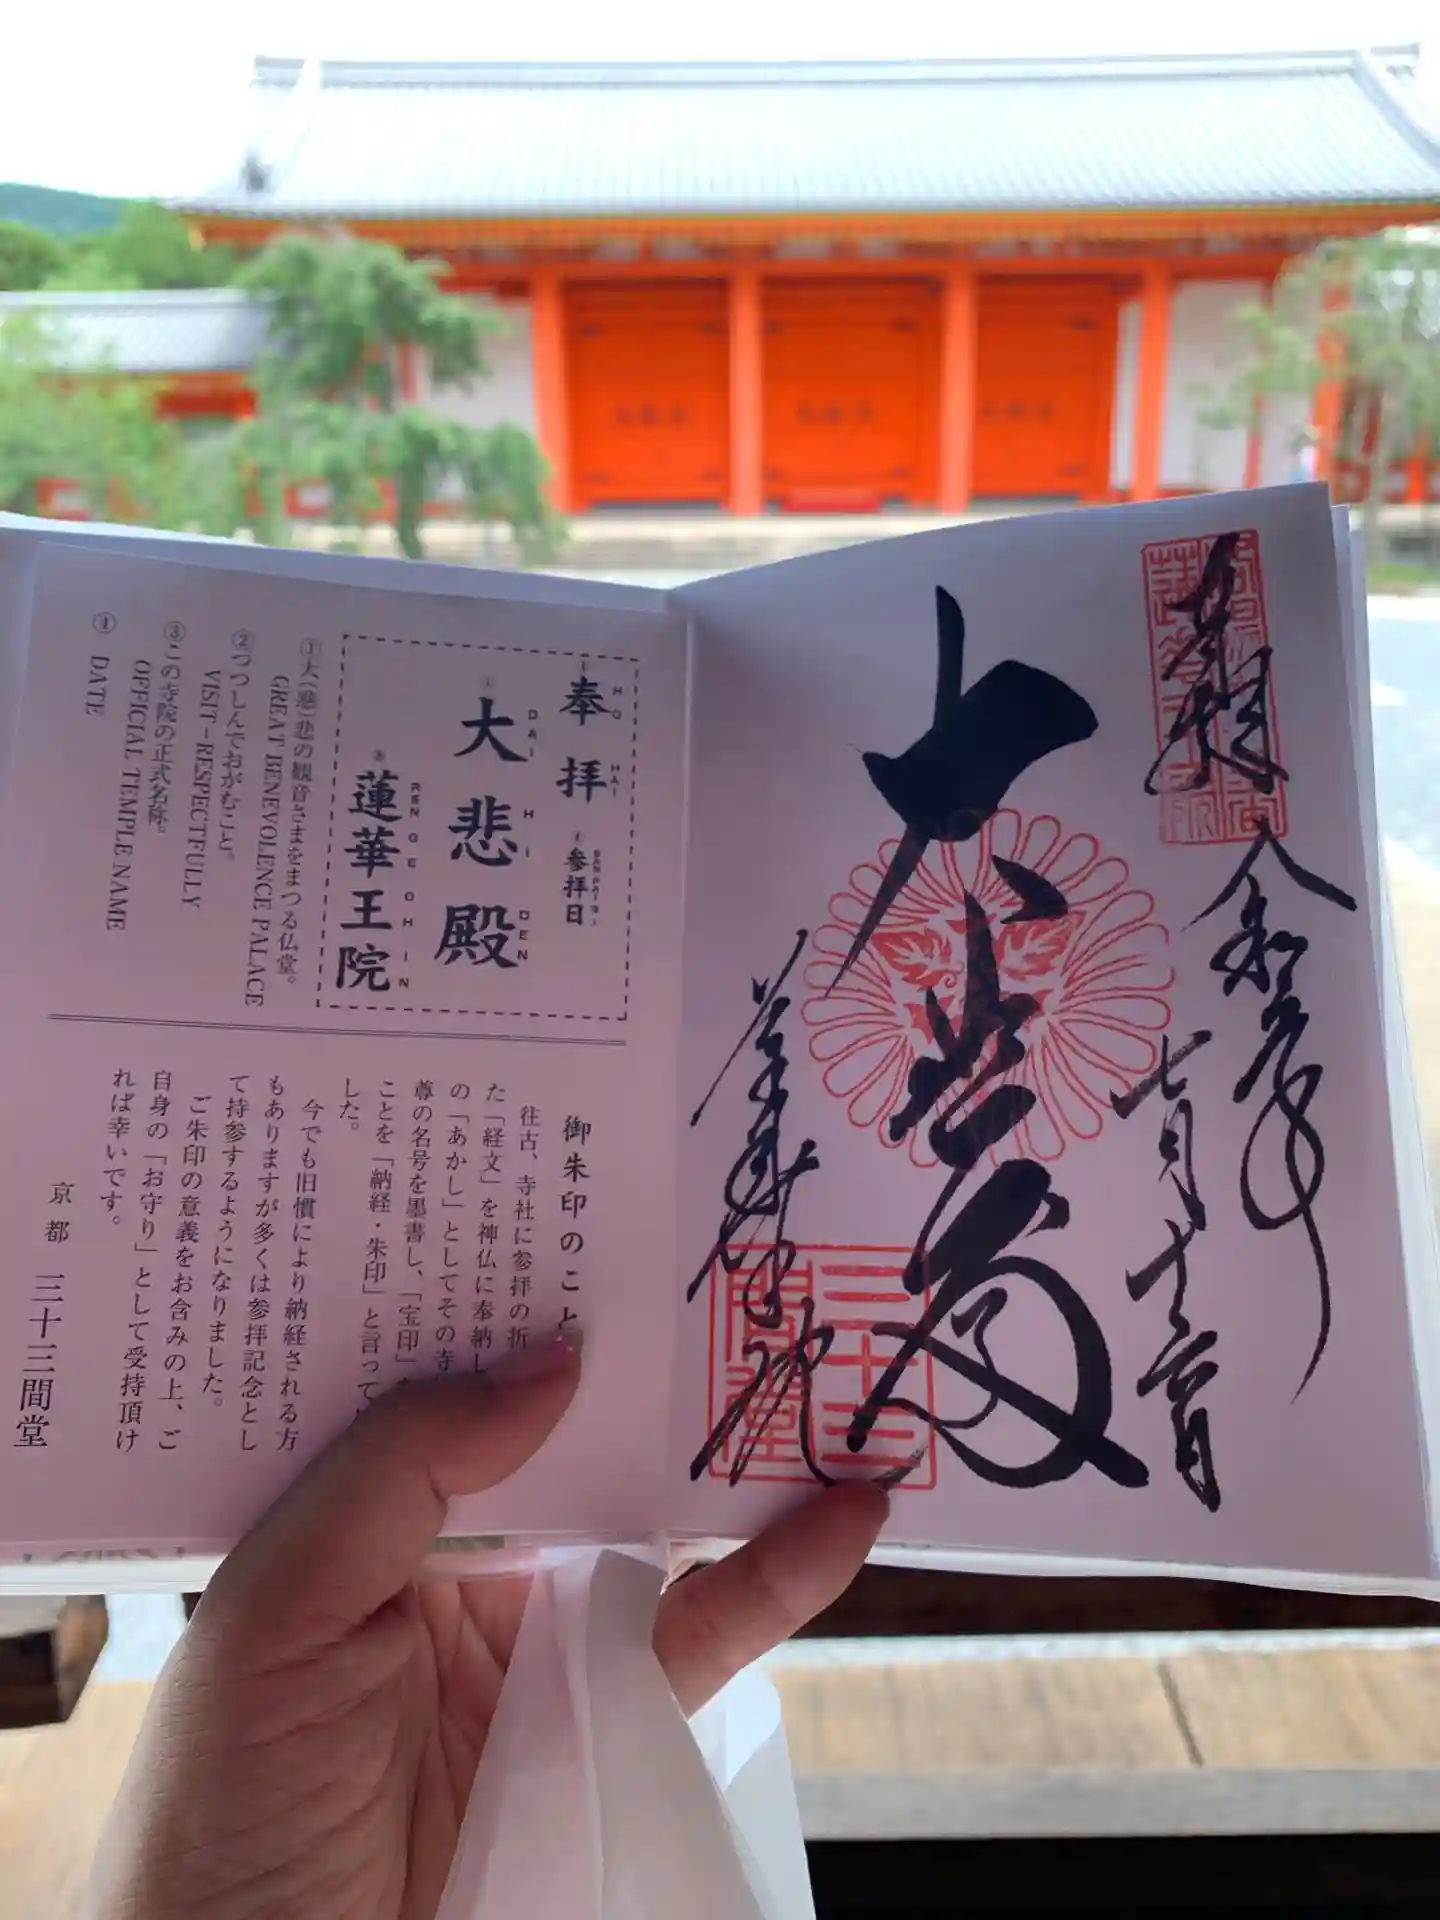 奉拝
令和六年
七月十六日
大悲殿
蓮華王院
三十三
間堂
HO HAI
奉拝
④ SANPAIBI
参拝日
① DAI HI DEN
大悲殿
③ REN GE OH IN
蓮華王院
①大(慈)悲の観音さまをまつる仏堂。
GREAT BENEVOLENCE PALACE
②つつしんでおがむこと。
VISIT－RESPECTFULLY
③この寺院の正式名称。
OFFICIAL TEMPLE NAME
④ DATE
御朱印のこと
往古、寺社に参拝の折
た「経文」を神仏に奉納し
の「あかし」としてその寺
尊の名号を墨書し、「宝印」
ことを「納経・朱印」と言って
した。
今でも旧慣により納経される方
もありますが多くは参拝記念とし
て持参するようになりました。
ご朱印の意義をお含みの上、ご
自身の「お守り」として受持頂け
れば幸いです。
京都 三十三間堂